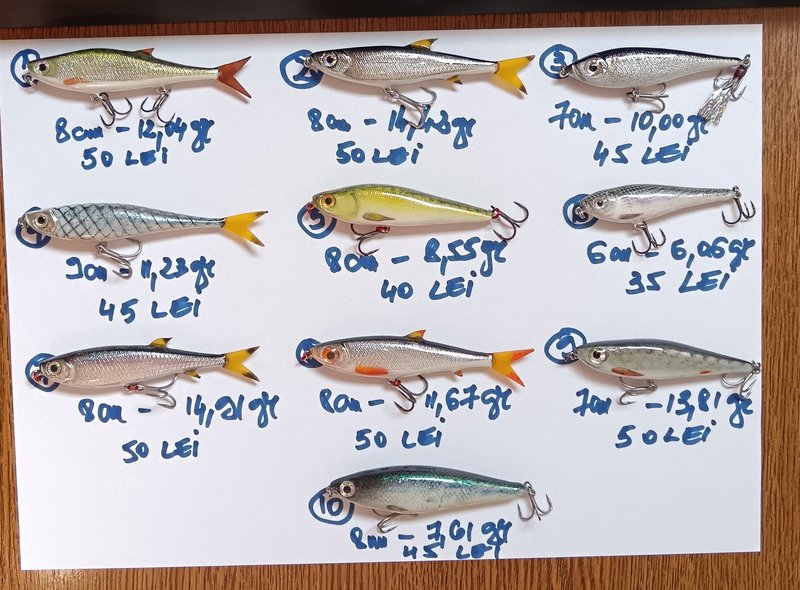 1
8cm - 12,04 gr
50 LEI
2
8cm - 14,43 gr
50 LEI
3
7cm - 10,00 gr
45 LEI
4
9cm - 11,23 gr
45 LEI
5
8cm - 8,55 gr
40 LEI
6
6cm - 6,06 gr
35 LEI
7
8cm - 14,21 gr
50 LEI
8
8cm - 11,67 gr
50 LEI
9
7cm - 13,81 gr
50 LEI
10
8cm - 7,61 gr
45 LEI